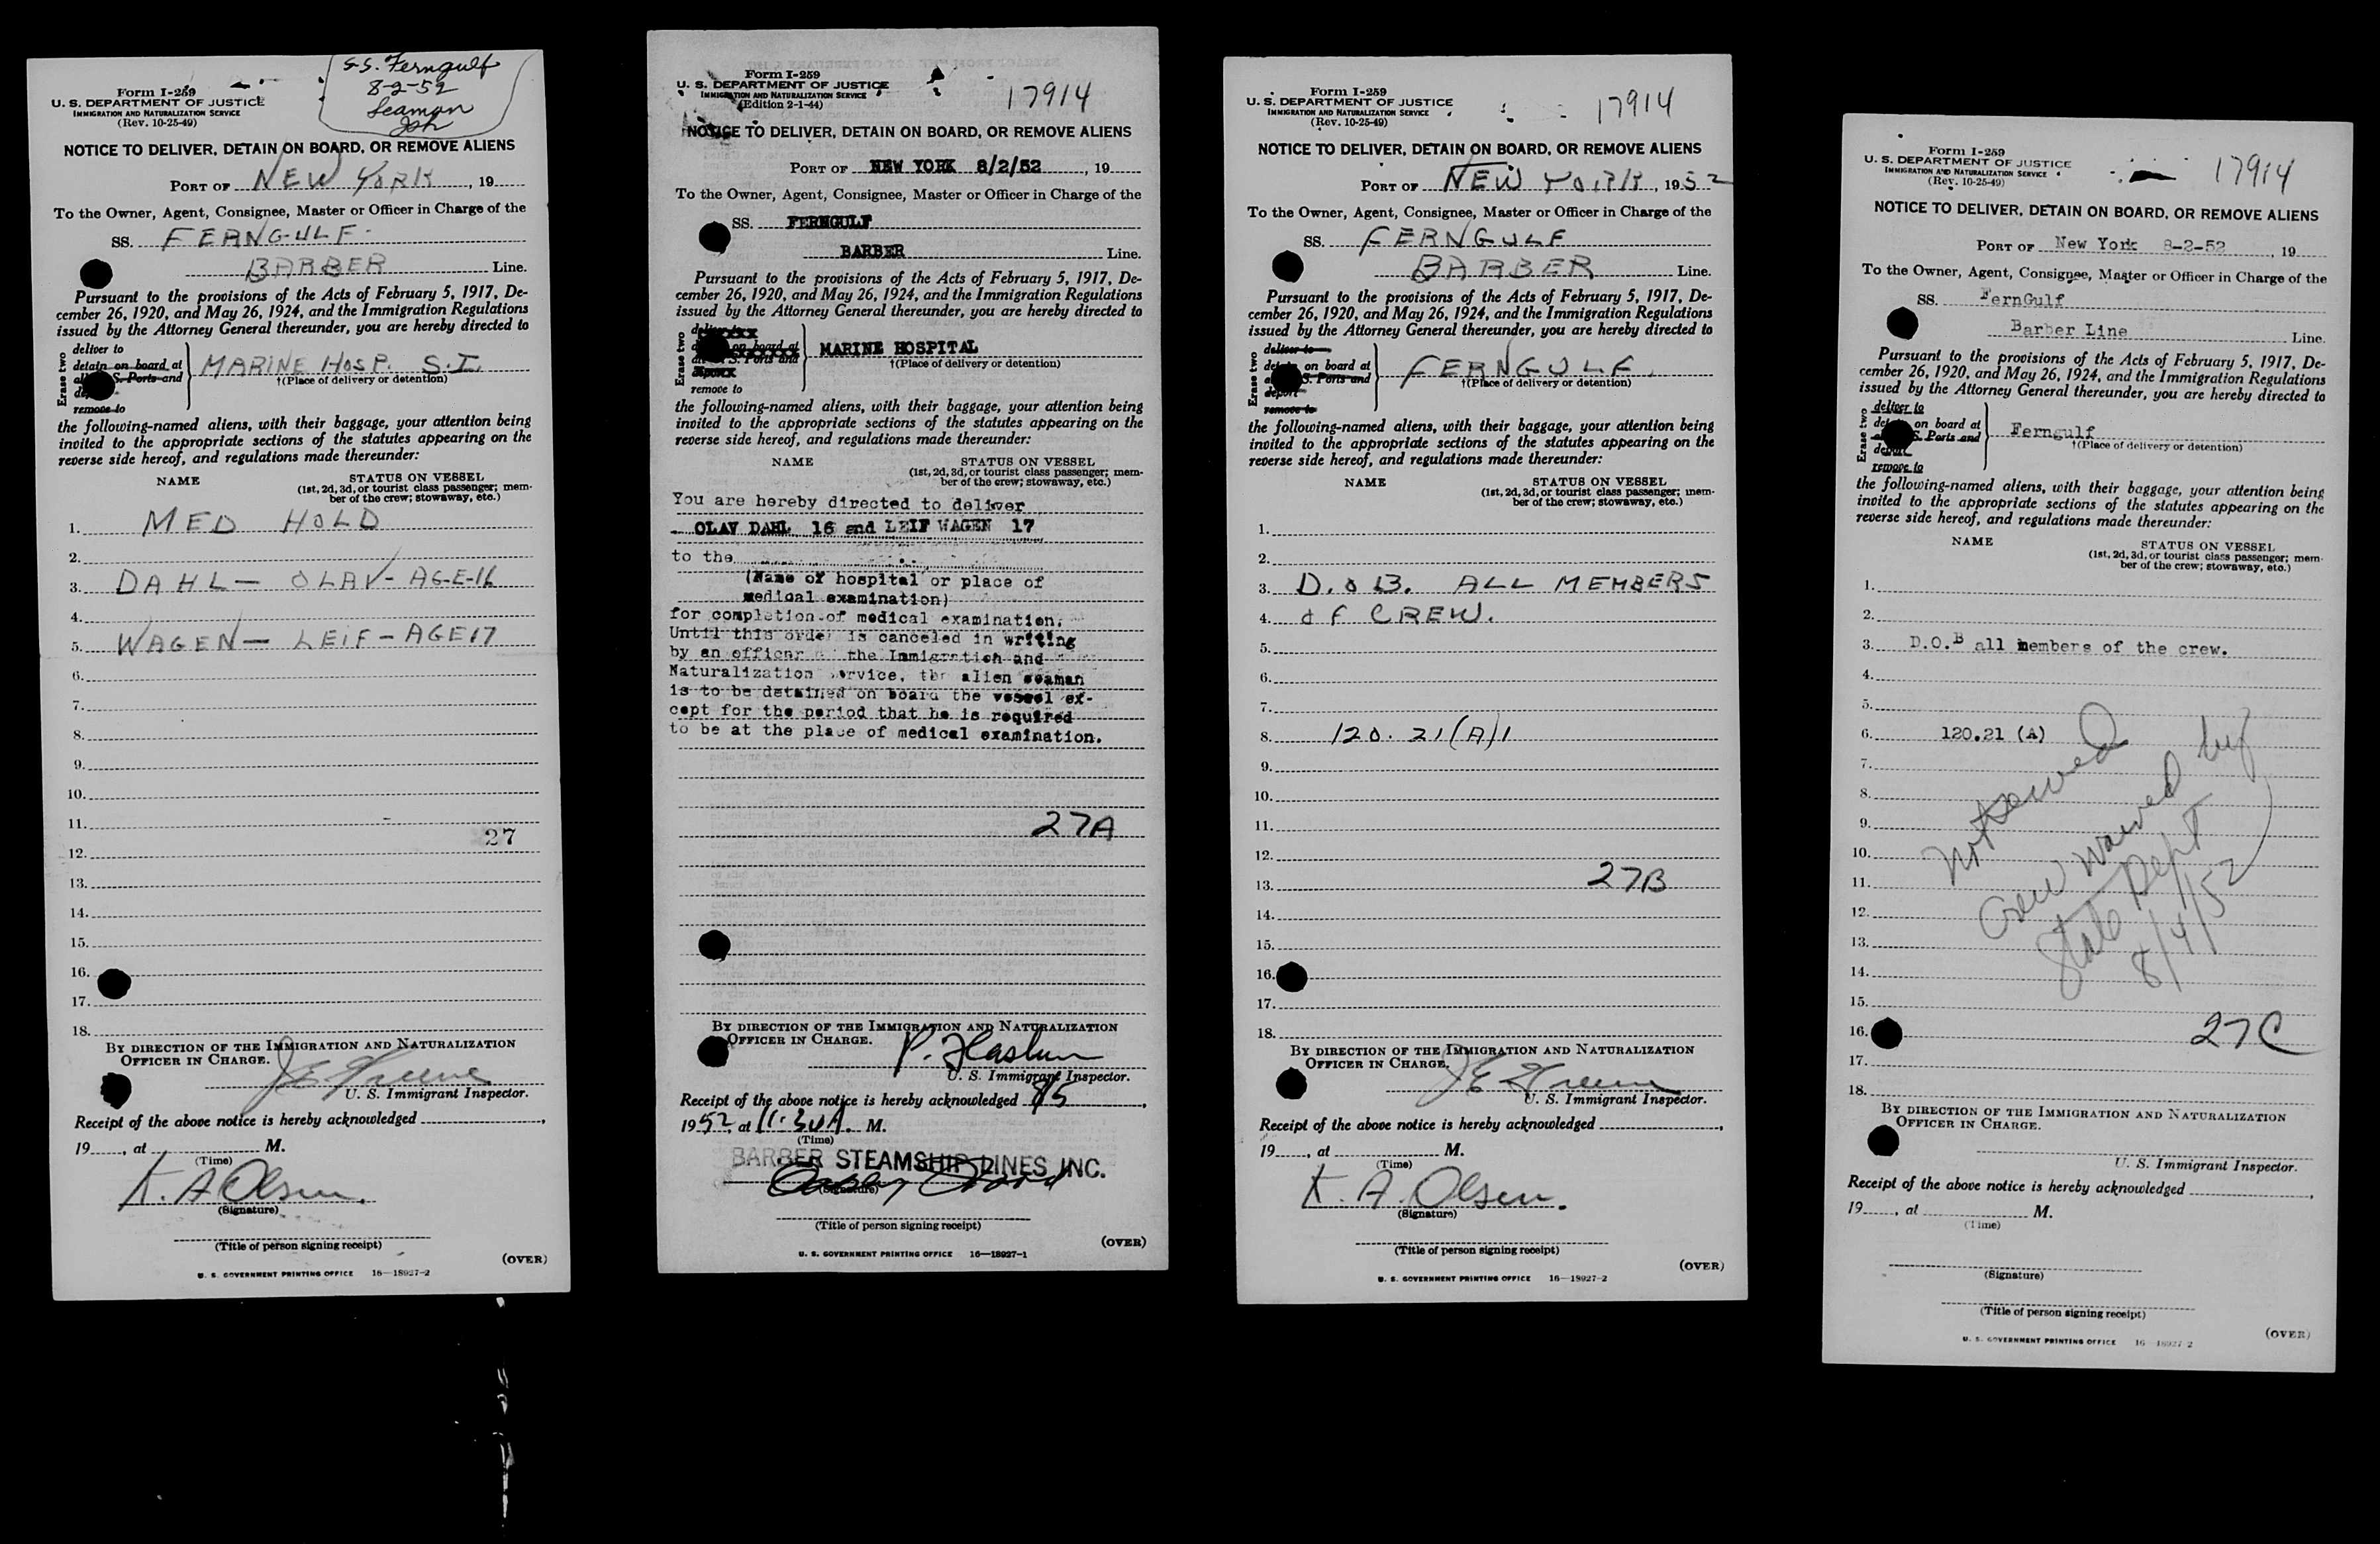 S.S. Ferngulf
8-2-52
Seaman
Form I-259
U. S. DEPARTMENT OF JUSTICE
IMMIGRATION AND NATURALIZATION SERVICE
(Rev. 10-25-49)
NOTICE TO DELIVER, DETAIN ON BOARD, OR REMOVE ALIENS
PORT OF NEW YORK, 19
To the Owner, Agent, Consignee, Master or Officer in Charge of the
SS. FERNGULF
BARBER Line.
Pursuant to the provisions of the Acts of February 5, 1917, De-
cember 26, 1920, and May 26, 1924, and the Immigration Regulations
issued by the Attorney General thereunder, you are hereby directed to
Erase two
deliver to
detain on board at
S. Ports and
remove to
MARINE HOSP. S.I.
†(Place of delivery or detention)
the following-named aliens, with their baggage, your attention being
invited to the appropriate sections of the statutes appearing on the
reverse side hereof, and regulations made thereunder:
NAME STATUS ON VESSEL
(1st, 2d, 3d, or tourist class passenger; mem-
ber of the crew; stowaway, etc.)
1. MED HOLD
2.
3. DAHL — OLAV - AGE-16
4.
5. WAGEN — LEIF - AGE 17
6.
7.
8.
9.
10.
11.
27
12.
13.
14.
15.
16.
17.
18.
BY DIRECTION OF THE IMMIGRATION AND NATURALIZATION
OFFICER IN CHARGE.
J E Greene
U. S. Immigrant Inspector.
Receipt of the above notice is hereby acknowledged
19, at M.
(Time)
K. A Olsen.
(Signature)
(Title of person signing receipt)
(OVER)
U. S. GOVERNMENT PRINTING OFFICE 16—18927-2
Form I-259
U. S. DEPARTMENT OF JUSTICE
IMMIGRATION AND NATURALIZATION SERVICE
(Edition 2-1-44)
17914
NOTICE TO DELIVER, DETAIN ON BOARD, OR REMOVE ALIENS
PORT OF NEW YORK 8/2/52, 19
To the Owner, Agent, Consignee, Master or Officer in Charge of the
SS. FERNGULF
BARBER Line.
Pursuant to the provisions of the Acts of February 5, 1917, De-
cember 26, 1920, and May 26, 1924, and the Immigration Regulations
issued by the Attorney General thereunder, you are hereby directed to
Erase two
on board at
S. Ports and
remove to
MARINE HOSPITAL
†(Place of delivery or detention)
the following-named aliens, with their baggage, your attention being
invited to the appropriate sections of the statutes appearing on the
reverse side hereof, and regulations made thereunder:
NAME STATUS ON VESSEL
(1st, 2d, 3d, or tourist class passenger; mem-
ber of the crew; stowaway, etc.)
You are hereby directed to deliver
OLAV DAHL 16 and LEIF WAGEN 17
to the
(Name of hospital or place of
medical examination)
for completion of medical examination.
Until this order is canceled in writing
by an officer the Immigration and
Naturalization Service, the alien seaman
is to be detained on board the vessel ex-
cept for the period that he is required
to be at the place of medical examination.
27A
BY DIRECTION OF THE IMMIGRATION AND NATURALIZATION
OFFICER IN CHARGE.
U. S. Immigrant Inspector.
Receipt of the above notice is hereby acknowledged 8/5,
1952, at 11:30 A. M.
(Time)
BARBER STEAMSHIP LINES, INC.
(Signature)
(Title of person signing receipt)
(OVER)
U. S. GOVERNMENT PRINTING OFFICE 16—18927-1
Form I-259
U. S. DEPARTMENT OF JUSTICE
IMMIGRATION AND NATURALIZATION SERVICE
(Rev. 10-25-49)
17914
NOTICE TO DELIVER, DETAIN ON BOARD, OR REMOVE ALIENS
PORT OF NEW YORK, 1952
To the Owner, Agent, Consignee, Master or Officer in Charge of the
SS. FERNGULF
BARBER Line.
Pursuant to the provisions of the Acts of February 5, 1917, De-
cember 26, 1920, and May 26, 1924, and the Immigration Regulations
issued by the Attorney General thereunder, you are hereby directed to
Erase two
deliver to
on board at
S. Ports and
deport
remove to
FERNGULF.
†(Place of delivery or detention)
the following-named aliens, with their baggage, your attention being
invited to the appropriate sections of the statutes appearing on the
reverse side hereof, and regulations made thereunder:
NAME STATUS ON VESSEL
(1st, 2d, 3d, or tourist class passenger; mem-
ber of the crew; stowaway, etc.)
1.
2.
3. D.O.B. ALL MEMBERS
4. OF CREW.
5.
6.
7.
8. 120.21(A)1
9.
10.
11.
12.
13. 27B
14.
15.
16.
17.
18.
BY DIRECTION OF THE IMMIGRATION AND NATURALIZATION
OFFICER IN CHARGE.
J E Greene
U. S. Immigrant Inspector.
Receipt of the above notice is hereby acknowledged
19, at M.
(Time)
K. A. Olsen.
(Signature)
(Title of person signing receipt)
(OVER)
U. S. GOVERNMENT PRINTING OFFICE 16—18927-2
Form I-259
U. S. DEPARTMENT OF JUSTICE
IMMIGRATION AND NATURALIZATION SERVICE
(Rev. 10-25-49)
17914
NOTICE TO DELIVER, DETAIN ON BOARD, OR REMOVE ALIENS
PORT OF New York 8-2-52, 19
To the Owner, Agent, Consignee, Master or Officer in Charge of the
SS. FernGulf
Barber Line Line.
Pursuant to the provisions of the Acts of February 5, 1917, De-
cember 26, 1920, and May 26, 1924, and the Immigration Regulations
issued by the Attorney General thereunder, you are hereby directed to
Erase two
deliver to
on board at
S. Ports and
deport
remove to
Ferngulf
†(Place of delivery or detention)
the following-named aliens, with their baggage, your attention being
invited to the appropriate sections of the statutes appearing on the
reverse side hereof, and regulations made thereunder:
NAME STATUS ON VESSEL
(1st, 2d, 3d, or tourist class passenger; mem-
ber of the crew; stowaway, etc.)
1.
2.
3. D.O.B all members of the crew.
4.
5.
6. 120.21 (A)
7.
8.
9.
10.
11.
12.
13.
14.
15.
Not served
Crew waived by
State Dept
8/4/52
16. 27C
17.
18.
BY DIRECTION OF THE IMMIGRATION AND NATURALIZATION
OFFICER IN CHARGE.
U. S. Immigrant Inspector.
Receipt of the above notice is hereby acknowledged
19, at M.
(Time)
(Signature)
(Title of person signing receipt)
(OVER)
U. S. GOVERNMENT PRINTING OFFICE 16—18927-2